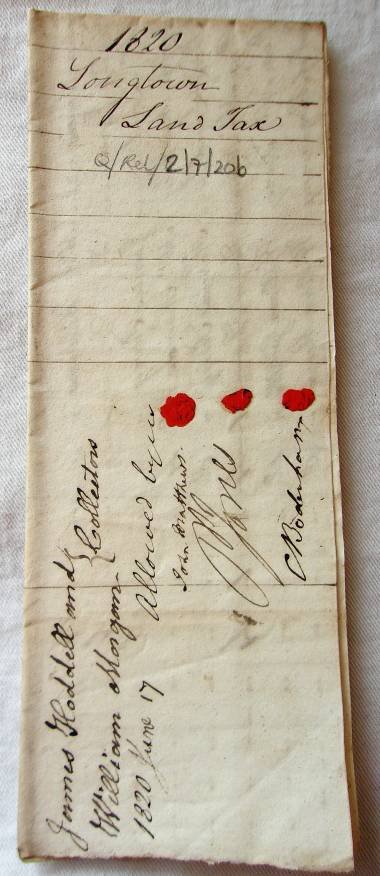 1820
Longtown
Land Tax
Q/Rel/2/7/20b
James Hoddell and
William Morgan } Collectors
1820 June 17
Allowed by us
John Matthews.
C Bodenham